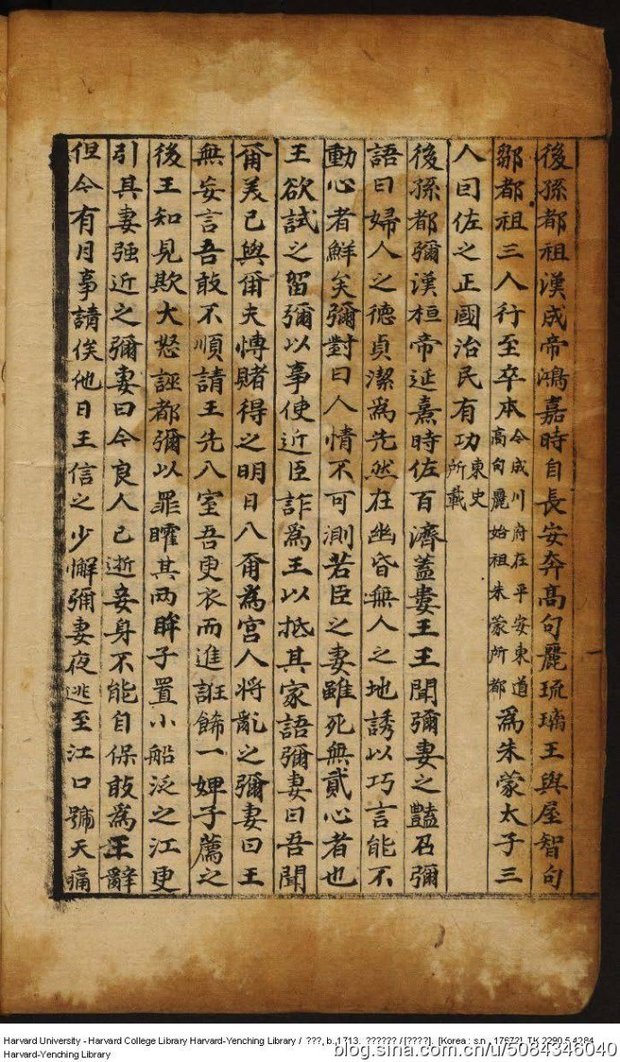 後孫都祖漢成帝鴻嘉時自長安奔高句麗琉璃王與屋智句
鄒都祖三人行至卒本今成川府在平安東道高句麗始祖朱蒙所都爲朱蒙太子三
人回佐之正國治民有功東史所載
後孫都彌漢桓帝延熹時佐百濟蓋婁王王聞彌妻之豔召彌
語曰婦人之德貞潔爲先然在幽昏無人之地誘以巧言能不
動心者鮮矣彌對曰人情不可測若臣之妻雖死無貳心者也
王欲試之留彌以事使近臣詐爲王以抵其家語彌妻曰吾聞
爾美已與爾夫慱賭得之明日入爾爲宮人將亂之彌妻曰王
無妄言吾敢不順請王先入室吾更衣而進誑餙一婢子薦之
後王知見欺大怒誣都彌以罪矐其兩眸子置小船泛之江更
引其妻强近之彌妻曰今良人已逝妾身不能自保敢爲王辭
但今有月事請俟他日王信之少懈彌妻夜逃至江口號天痛
Harvard University - Harvard College Library Harvard-Yenching Library / ???, b. 1713. ?????? / [????]. [Korea : s.n
Harvard-Yenching Library
blog.sina.com.cn/u/5084346040